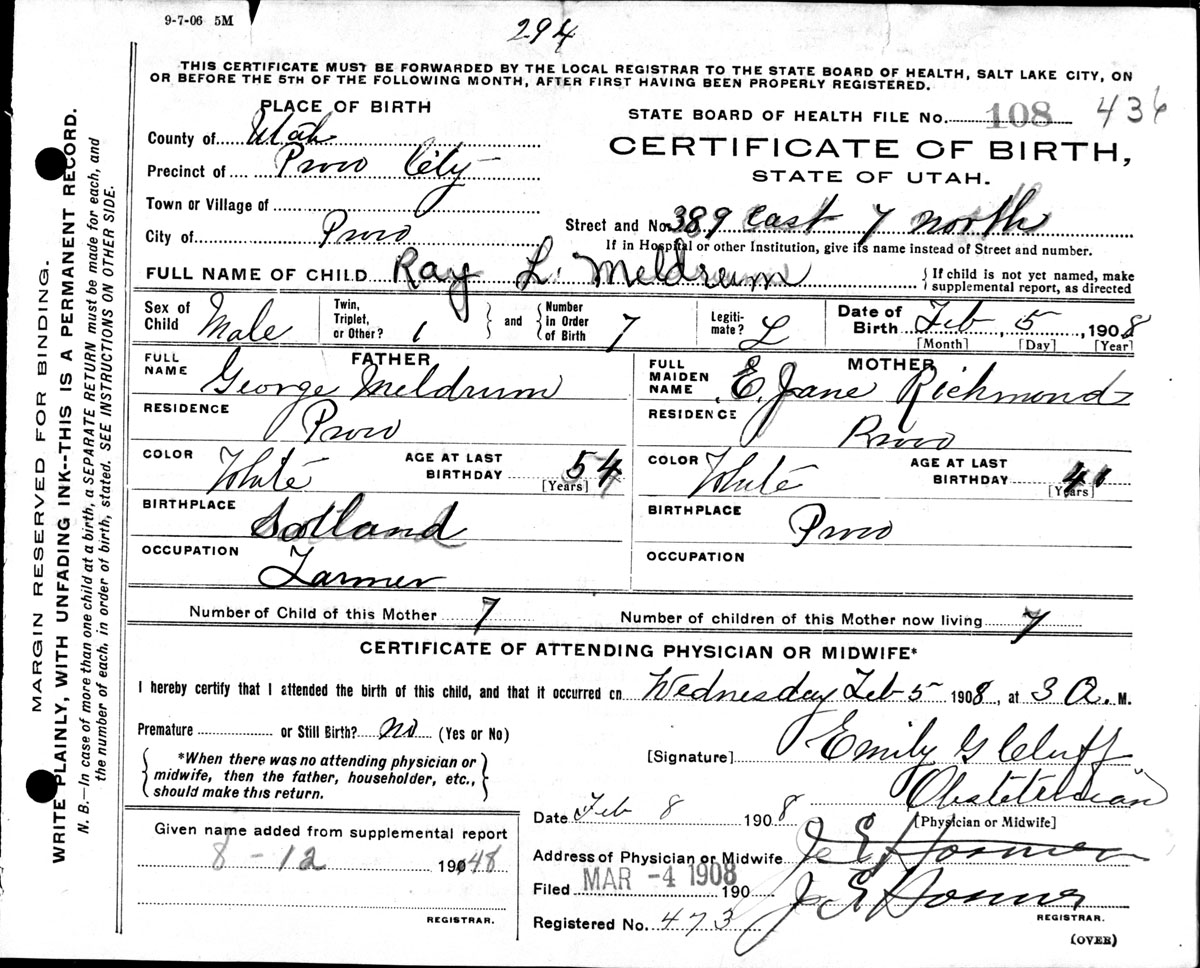 9-7-06 5M
294
THIS CERTIFICATE MUST BE FORWARDED BY THE LOCAL REGISTRAR TO THE STATE BOARD OF HEALTH, SALT LAKE CITY, ON
OR BEFORE THE 5TH OF THE FOLLOWING MONTH, AFTER FIRST HAVING BEEN PROPERLY REGISTERED.
PLACE OF BIRTH
County of Utah
Precinct of Provo City
Town or Village of
City of Provo
STATE BOARD OF HEALTH FILE No. 108 436
CERTIFICATE OF BIRTH,
STATE OF UTAH.
Street and No. 389 East 7 North
If in Hospital or other Institution, give its name instead of Street and number.
FULL NAME OF CHILD Ray L. Meldrum
{If child is not yet named, make
supplemental report, as directed
Sex of Child Male
Twin, Triplet, or Other? 1 } and { Number in Order of Birth 7
Legiti-mate? L
Date of Birth Feb, 5, 1908
[Month] [Day] [Year]
FATHER
FULL NAME George Meldrum
RESIDENCE Provo
COLOR White AGE AT LAST BIRTHDAY 54
[Years]
BIRTHPLACE Scotland
OCCUPATION Farmer
MOTHER
FULL MAIDEN NAME E. Jane Richmond
RESIDENCE Provo
COLOR White AGE AT LAST BIRTHDAY 41
[Years]
BIRTHPLACE Provo
OCCUPATION
Number of Child of this Mother 7 Number of children of this Mother now living 7
CERTIFICATE OF ATTENDING PHYSICIAN OR MIDWIFE*
I hereby certify that I attended the birth of this child, and that it occurred on Wednesday Feb 5 1908, at 3 A. M.
Premature or Still Birth? No (Yes or No)
*When there was no attending physician or
midwife, then the father, householder, etc.,
should make this return.
[Signature] Emily G Cluff
Obstetrician
[Physician or Midwife]
Date Feb 8 1908
Address of Physician or Midwife J E Hosmer
Filed MAR -4 1908 190 J E Hosmer
REGISTRAR.
Registered No. 473
(OVER)
Given name added from supplemental report
8-12 19048
REGISTRAR.
MARGIN RESERVED FOR BINDING.
WRITE PLAINLY, WITH UNFADING INK--THIS IS A PERMANENT RECORD.
N. B.—In case of more than one child at a birth, a SEPARATE RETURN must be made for each, and
the number of each, in order of birth, stated. SEE INSTRUCTIONS ON OTHER SIDE.